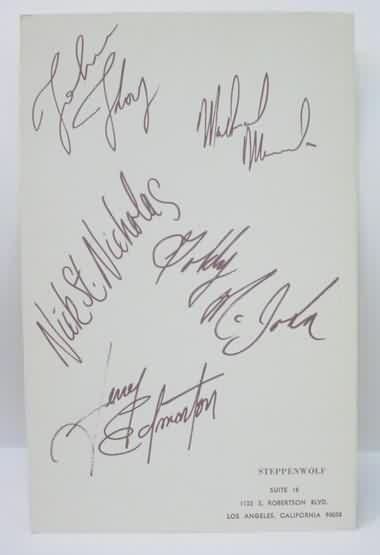 John
Kay
Michael
Monarch
Nick St. Nicholas
Goldy
McJohn
Jerry
Edmonton
STEPPENWOLF
SUITE 16
1122 S. ROBERTSON BLVD.
LOS ANGELES, CALIFORNIA 90035